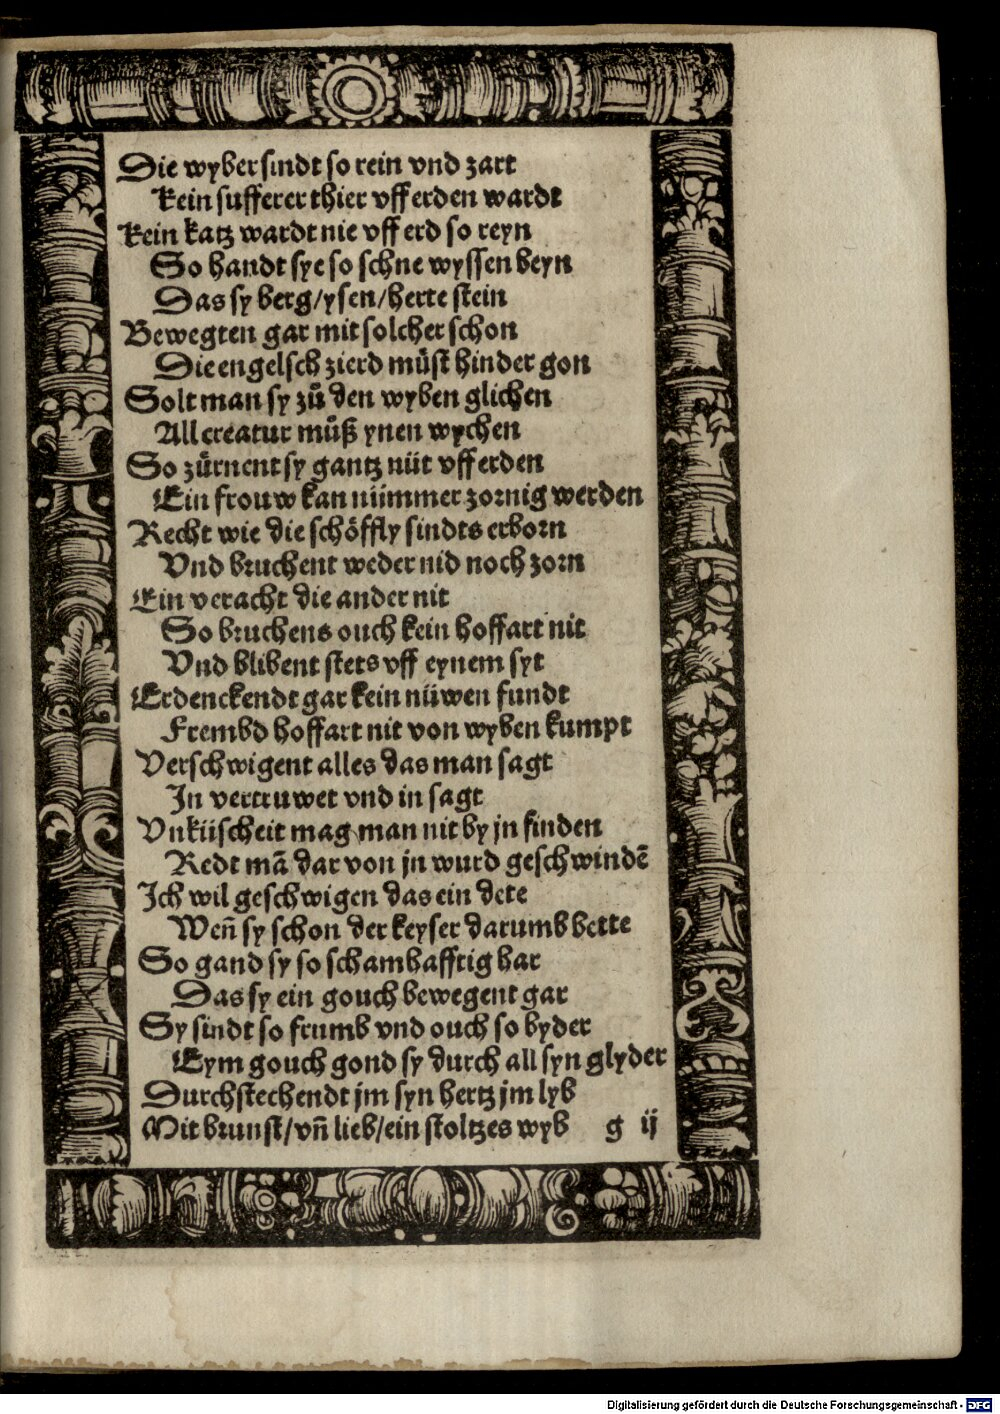 Die wyber sindt so rein vnd zart
Kein sufferer thier vff erden wardt
Kein katz wardt nie vff erd so reyn
So handt sye so schne wyssen beyn
Das sy berg/ysen/herte stein
Bewegten gar mit solcher schon
Die engelsch zierd müst hinder gon
Solt man sy zů den wyben glichen
All creatur můß ynen wychen
So zürnent sy gantz nüt vff erden
Ein frouw kan nümmer zornig werden
Recht wie die schöffly sindts erborn
Vnd bruchent weder nid noch zorn
Ein veracht die ander nit
So bruchens ouch kein hoffart nit
Vnd blibent stets vff eynem syt
Erdenckendt gar kein nüwen fundt
Frembd hoffart nit von wyben kumpt
Verschwigent alles das man sagt
In vertruwet vnd in sagt
Vnküscheit mag man nit by jn finden
Redt mā dar von jn wurd geschwindē
Ich wil geschwigen das ein dete
Weñ sy schon der keyser darumb bette
So gand sy so schamhafftig har
Das sy ein gouch bewegent gar
Sy sindt so frumb vnd ouch so byder
Eym gouch gond sy durch all syn glyder
Durchstechendt jm syn hertz jm lyb
Mit brunst/vñ lieb/ein stoltzes wyb g ij
Digitalisierung gefördert durch die Deutsche Forschungsgemeinschaft - DFG